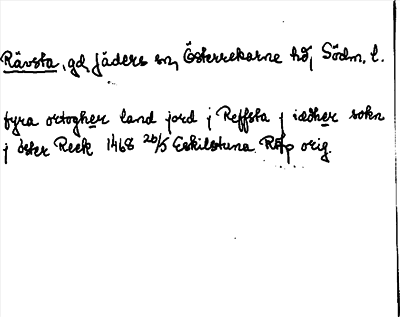 Rävsta, gd, Jäders sn, Österrekarne hd, Södm. l.
fyra ortogher land jord j Reffsta j iædher sokn
j öster Reek 1468 26/5 Eskilstuna. RAp orig.